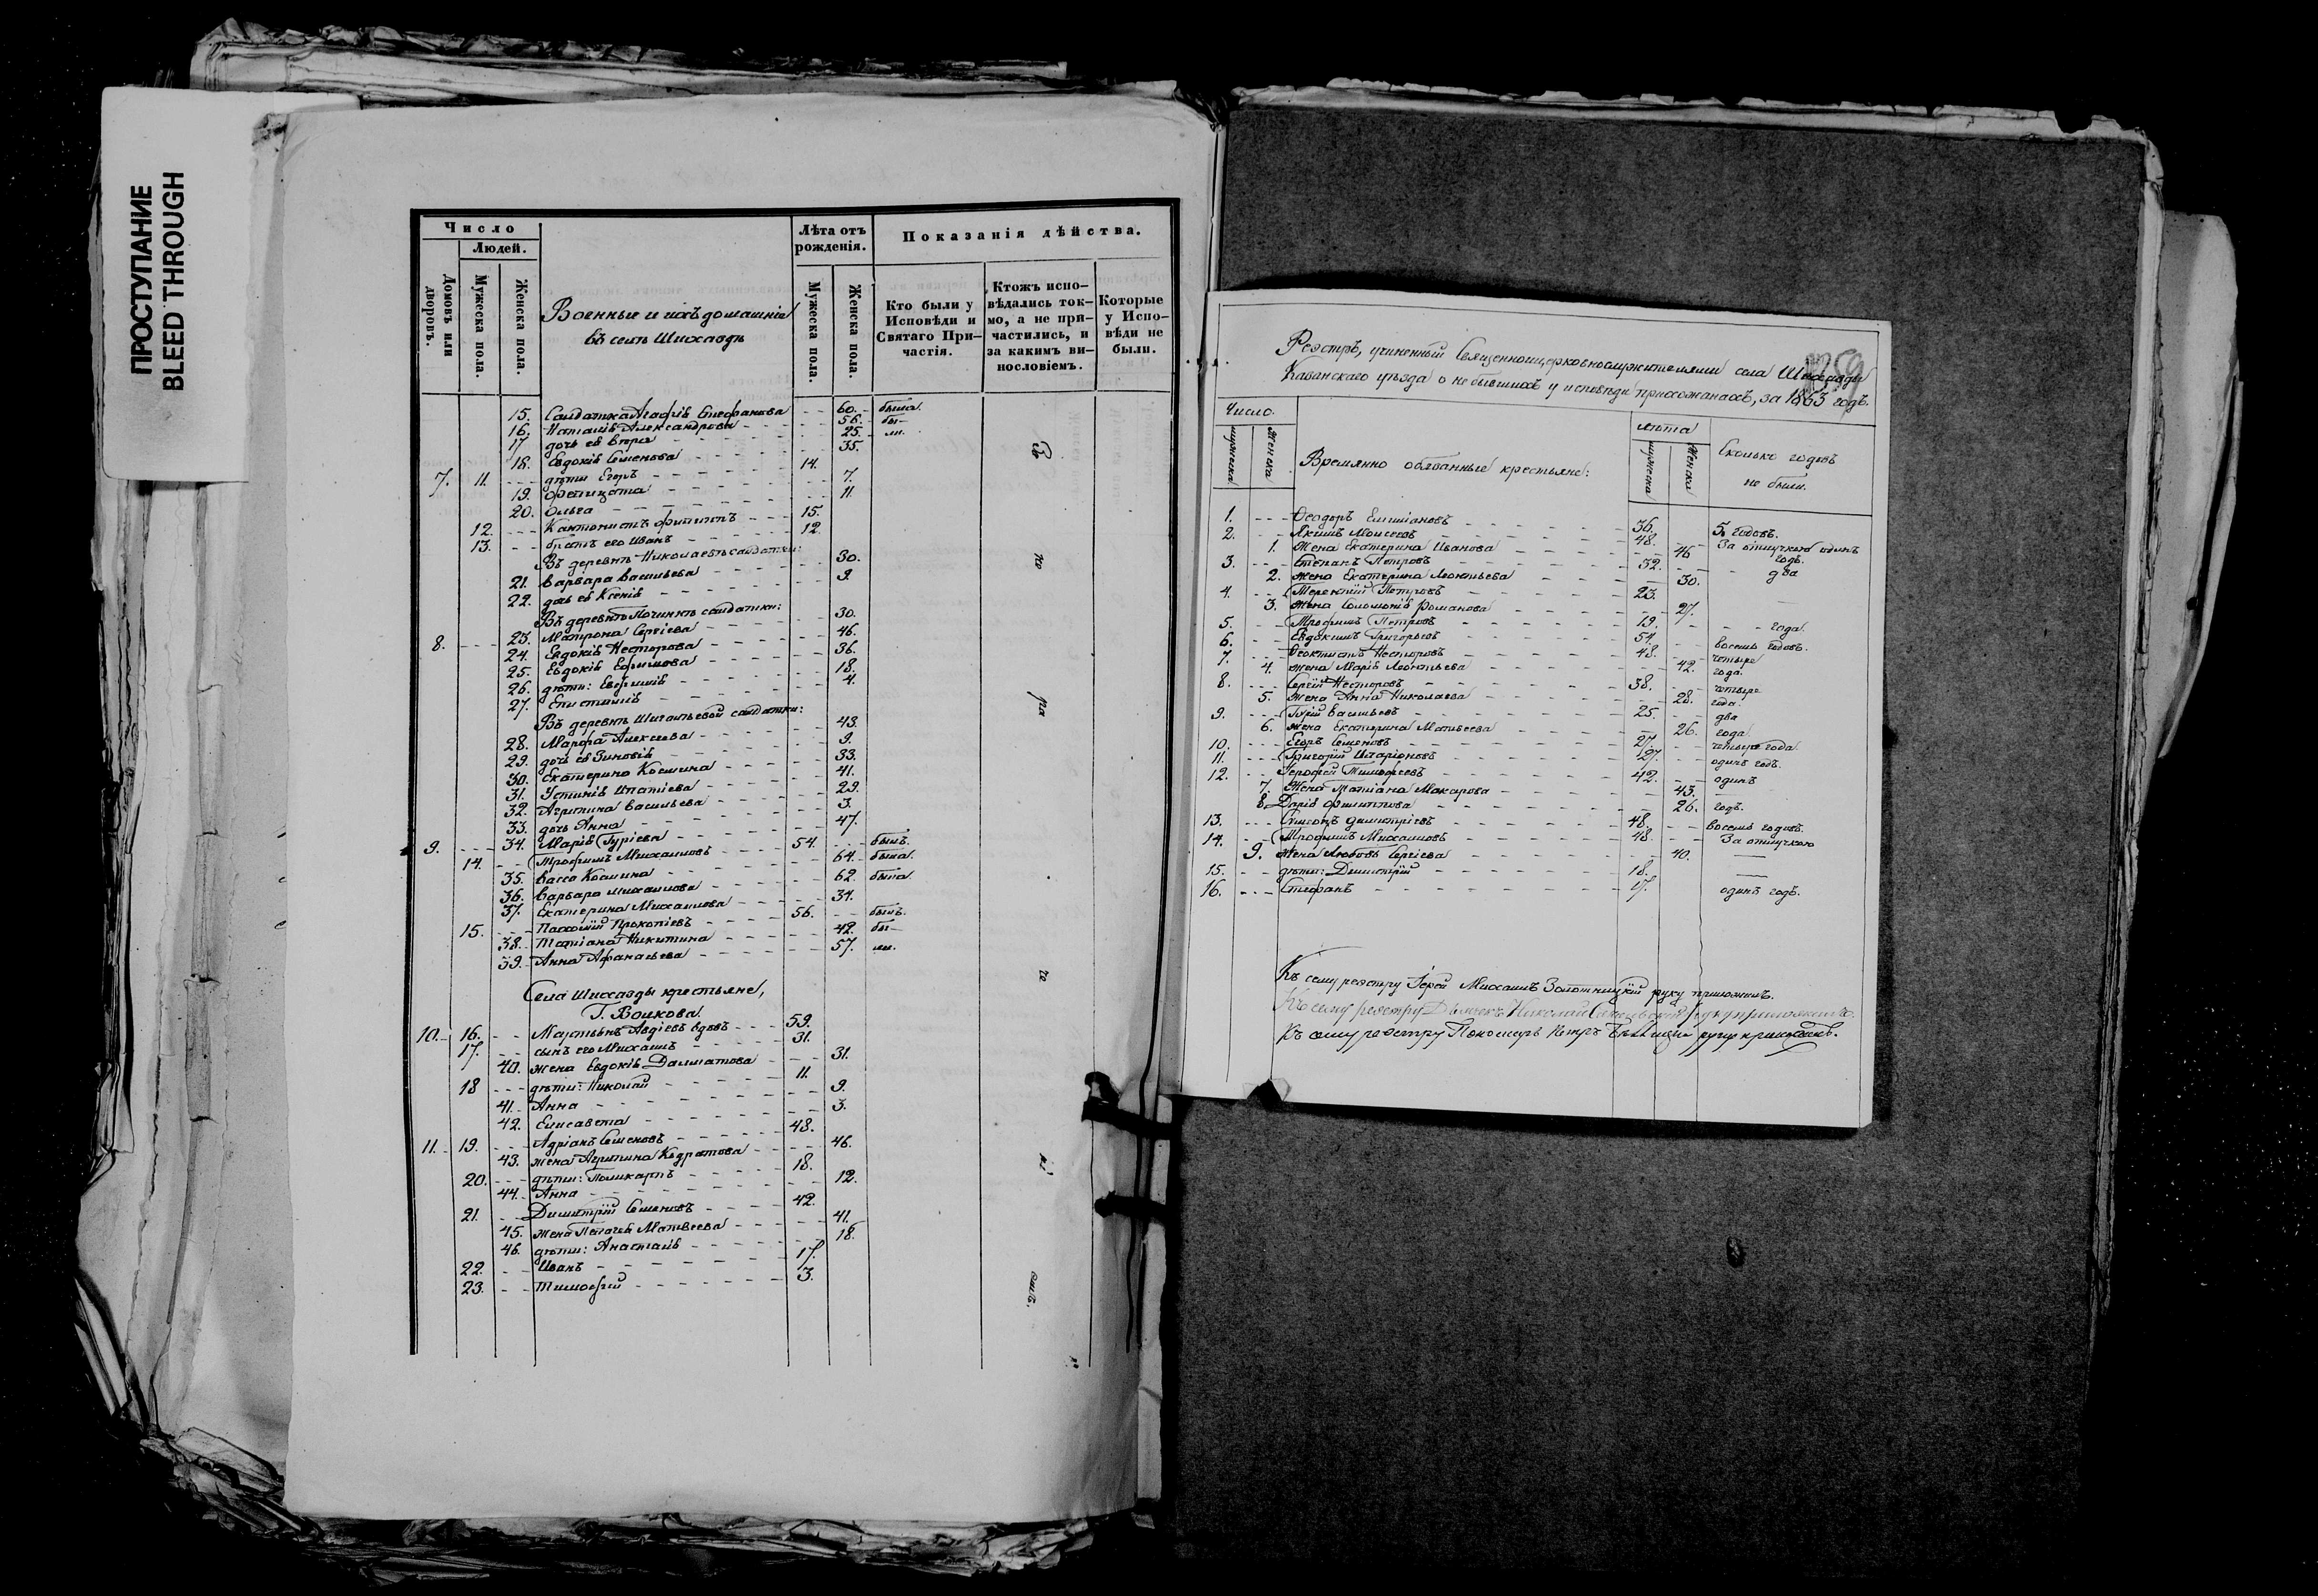 ПРОСТУПАНИЕ
BLEED THROUGH
Число
Людей.
Домовъ или дворовъ.
Мужеска пола.
Женска пола.
Военные и ихъ домашніе
въ селѣ Шихаздѣ
Лѣта отъ рожденія.
Мужеска пола.
Женска пола.
Показанія дѣйства.
Кто были у Исповѣди и Святаго Причастія.
Ктожъ исповѣдались токмо, а не причастились, и за какимъ винословіемъ.
Которые у Исповѣди не были.
15. Солдатка Агафія Стефанова 60. была.
16. Наталія Александрова 56. бы-
17 дочь ея Вѣра 25. ли.
18. Евдокія Семенова 35.
7. 11. дѣти Егоръ 14.
19. Фелицата 7.
20. Ольга 11.
12. Кантонистъ Филиппъ 15.
13. братъ его Иванъ 12.
Въ деревнѣ Николаевкѣ солдатки:
21. Варвара Васильева 30.
22. дочь ея Ксенія 9.
Въ деревнѣ Починкѣ солдатки:
8. 23. Матрона Сергіева 30.
24. Евдокія Несторова 46.
25. Евдокія Ефимова 36.
26. дѣти: Евфимія 18.
27. Епистимія 4.
Въ деревнѣ Шигалѣевой солдатки:
28. Марфа Алексѣева 43.
29. дочь ея Зиновія 9.
30. Екатерина Космина 33.
31. Устинія Ипатіева 41.
32. Агрипина Васильева 29.
33. дочь Анна 3.
9. 34. Марія Гуріева 47.
14. Трофимъ Михаиловъ 54. былъ.
35. Васса Космина 64. была.
36. Варвара Михаилова 62. была.
37. Екатерина Михаилова 31.
15. Пахомій Прокопіевъ 56. былъ.
38. Татіана Никитина 42. бы-
39. Анна Афанасьева 57. ли.
Села Шихазды крестьяне,
Г. Волкова
10. 16. Мартынъ Авдіевъ вдовъ 59.
17. сынъ его Михаилъ 31.
40. жена Евдокія Далматова 31.
18 дѣти: Николай 11.
41. Анна 9.
42. Елисавета 3.
11. 19. Адріанъ Семеновъ 48.
43. жена Агрипина Кодратова 46.
20. дѣти: Поликарпъ 18.
44. Анна 12.
21. Димитрій Семеновъ 42.
45. жена Пелагія Матвеева 41.
46. дѣти: Анастасія 18.
22. Иванъ 17.
23. Тимофей 3.
Реэстръ, учиненный Священноцерковнослужителями села Шихазды
Казанскаго уѣзда о небывшихъ у исповѣди прихожанахъ, за 1863 годъ.
Число.
мужеска
Женска
Временно обязанные крестьяне:
лѣта
мужеска
Женска
Сколько годовъ
не были.
1. Феодоръ Емилiановъ 36. 5 годовъ.
2. Якимъ Моисеевъ 48. За отлучкою одинъ
1. Жена Екатерина Иванова 46 годъ.
3. Степанъ Петровъ 32. два
2. жена Екатерина Леонтьева 30.
4. Терентій Петровъ 23.
3. жена Соломонія Романова 27.
5. Трофимъ Петровъ 19. года.
6. Евдокимъ Григорьевъ 54. восемь годовъ.
7. Феоктистъ Несторовъ 48. четыре
4. жена Марія Леонтьева 42. года.
8. Сергій Несторовъ 38. четыре
5. жена Анна Николаева 28. года.
9. Гурій Васильевъ 25. два
6. жена Екатерина Матвеева 26. года.
10. Егоръ Семеновъ 27. четыре года.
11. Григорій Иларіоновъ 27. одинъ годъ.
12. Герофей Тимофеевъ 42. одинъ
7. Жена Татіана Макарова 43.
8. Дарія Филиппова 26. годъ.
13. Симонъ Димитріевъ 48. восемь годовъ.
14. Трофимъ Михаиловъ 48. За отлучкою
9. жена Любовь Сергіева 40.
15. дѣти: Димитрій 18.
16. Стефанъ 17. одинъ годъ.
Къ сему реэстру Іерей Михаилъ Золотницкій руку приложилъ.
Къ сему реэстру Дьячекъ Николай руку приложилъ.
Къ сему реэстру Пономарь Петръ руку приложилъ.